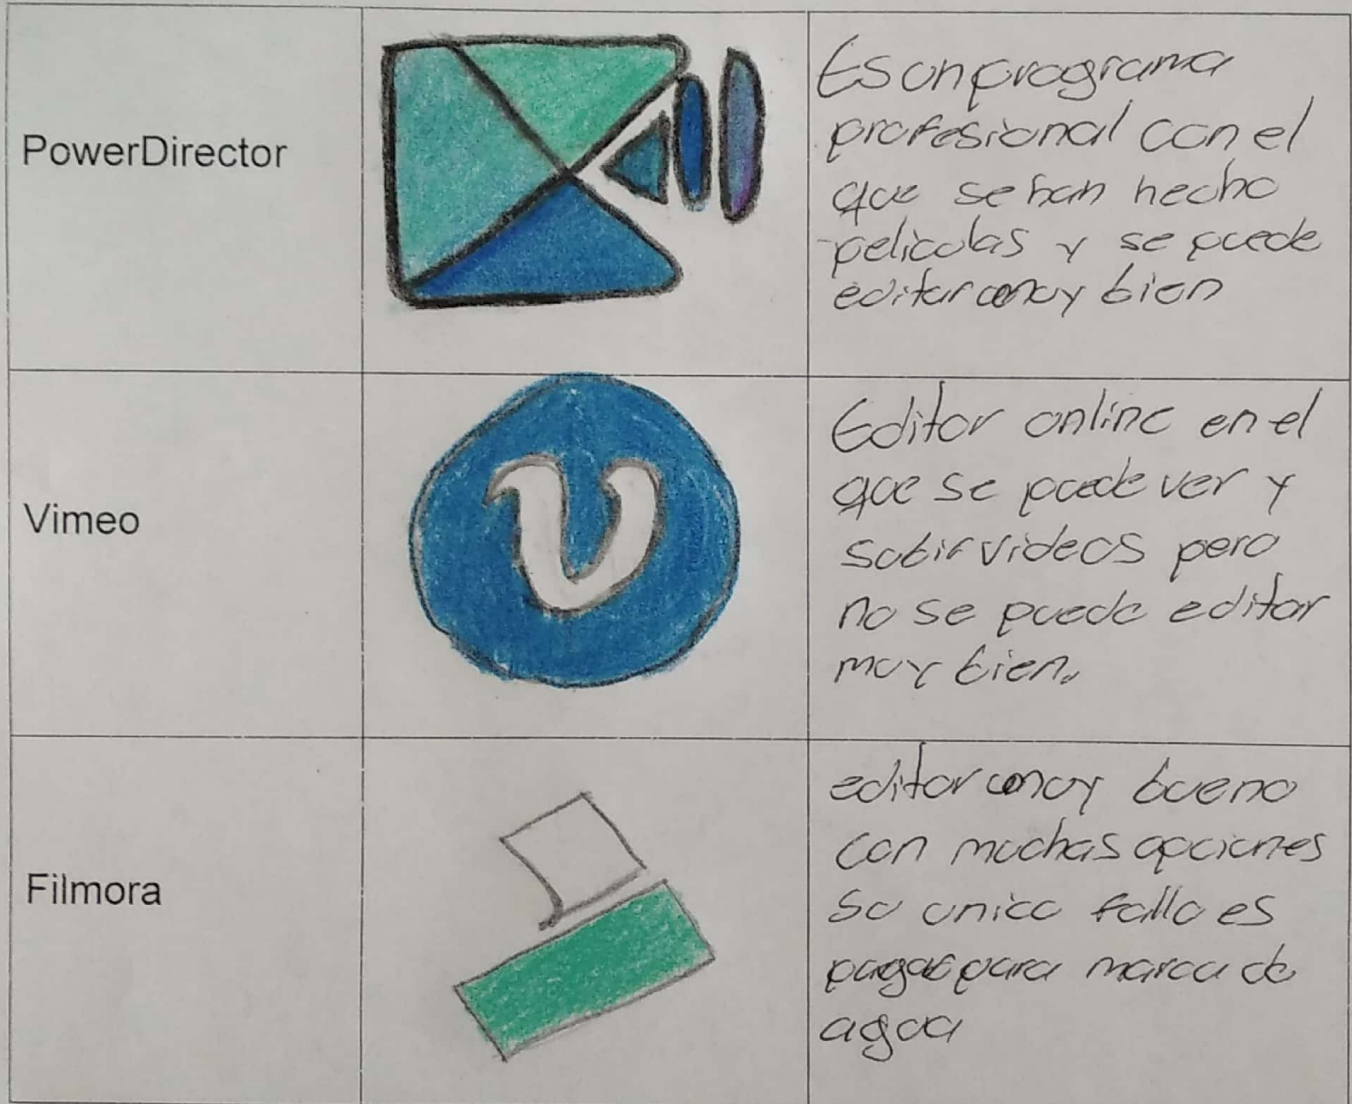 PowerDirector
Es un programa
profesional con el
que se han hecho
peliculas y se puede
editar muy bien
Vimeo
Editor online en el
que se puede ver y
subir videos pero
no se puede editar
muy bien.
Filmora
editor muy bueno
con muchas opciones
su unico fallo es
pagar para marca de
agua